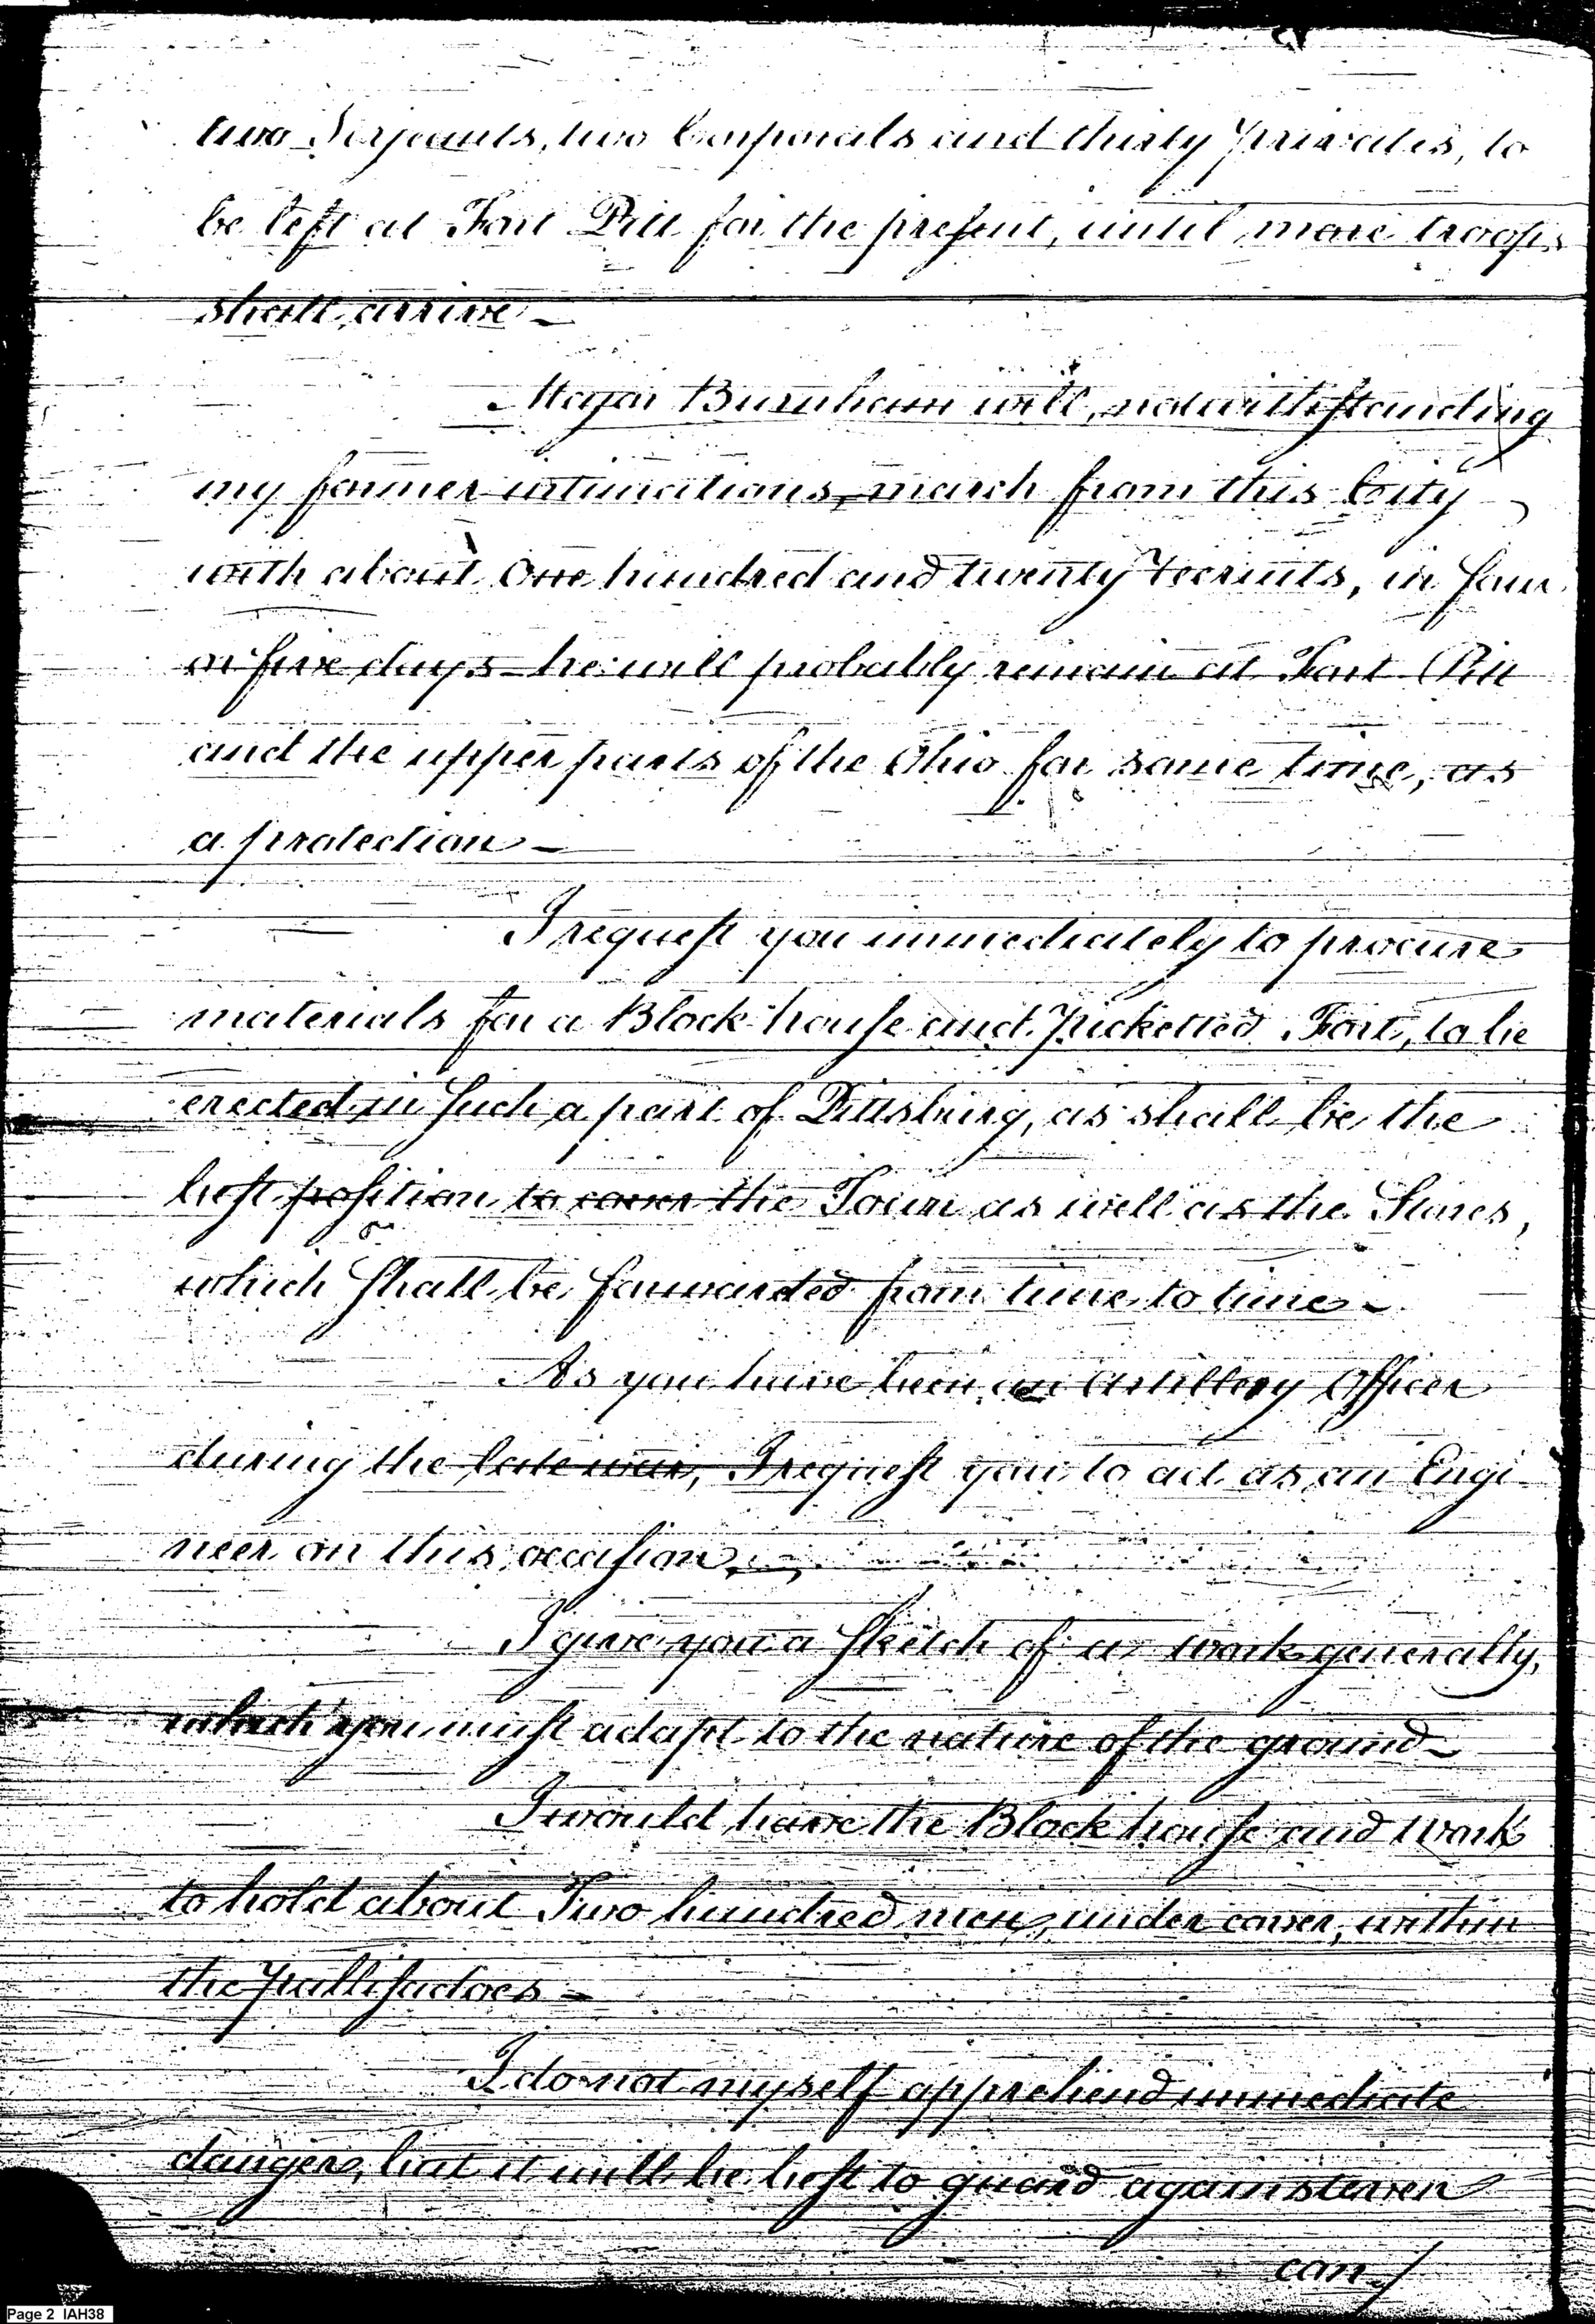 two Serjeants, two Corporals and thirty privates, to
be left at Fort Pitt for the present, until more troops
shall arrive —
Major Burnham will, notwithstanding
my former intimations, march from this City
with about One hundred and twenty recruits, in four
or five days — he will probably remain at Fort Pitt
and the upper parts of the Ohio for some time, as
a protection —
I request you immediately to procure
materials for a Block-house and Picketted Fort, to be
erected in such a part of Pittsburg, as shall be the
best position to cover the Town as well as the Stores,
which shall be forwarded from time to time —
As you have been an Artillery Officer
during the late war, I request you to act as an Engi-
neer on this occasion —
I give you a sketch of a work generally,
which you must adapt to the nature of the ground —
I would have the Block house and Work
to hold about Two hundred men, under cover, within
the pallisadoes —
I do not myself apprehend immediate
danger, but it will be best to guard against even
con /
Page 2 IAH38